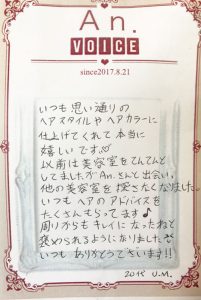 An.
VOICE
since2017.8.21
いつも思い通りの
ヘアスタイルやヘアカラーに
仕上げてくれて本当に
嬉しいです。
以前は美容室をてんてんと
してましたがAn.さんと出会い、
他の美容室を探さなくなりました。
いつもヘアのアドバイスを
たくさんもらってます♪
周りからもキレイになったねと
褒められるようになりました
いつもありがとうございます!!
U.M.